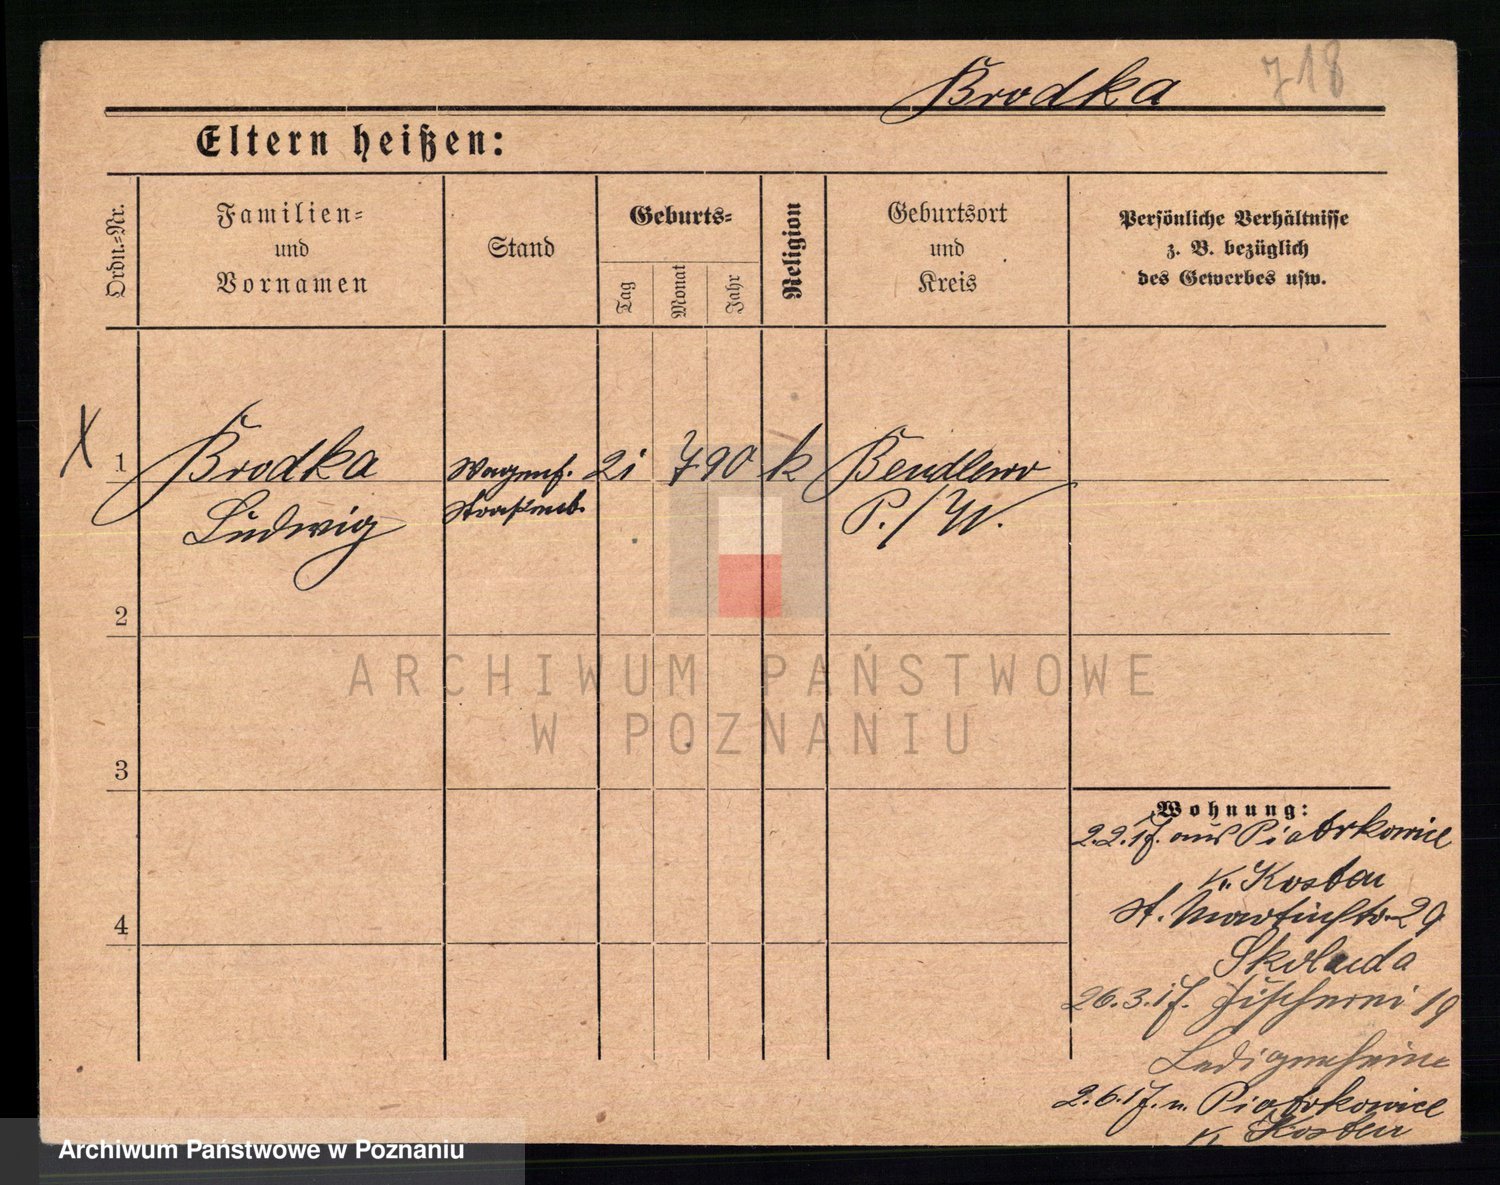 Brodka
718
Eltern heißen:
Ordn.-Nr.
Familien-
und
Vornamen
Stand
Geburts-
Tag
Monat
Jahr
Religion
Geburtsort
und
Kreis
Persönliche Verhältnisse
z. B. bezüglich
des Gewerbes usw.
X
1
Brodka
Ludwig
Wagenf.
Straßenb.
21
7
90
k
Bendlewo
P./W.
2
3
4
Wohnung:
2.2.17. aus Piotrkowice
Kr. Kosten
St. Martinstr. 29
Skoluda
26.3.17. Fischerei 19
Ledigenheim
2.6.17. n. Piotrkowice
Kr. Kosten
ARCHIWUM PAŃSTWOWE
W POZNANIU
Archiwum Państwowe w Poznaniu